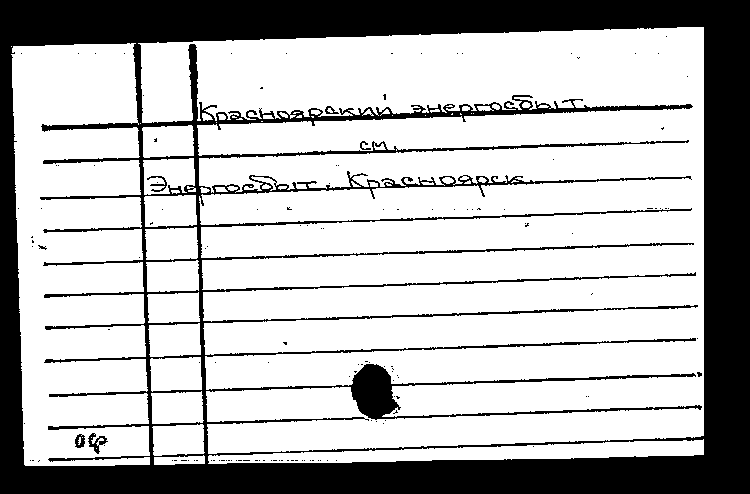 Красноярский энергосбыт.
см.
Энергосбыт. Красноярск.